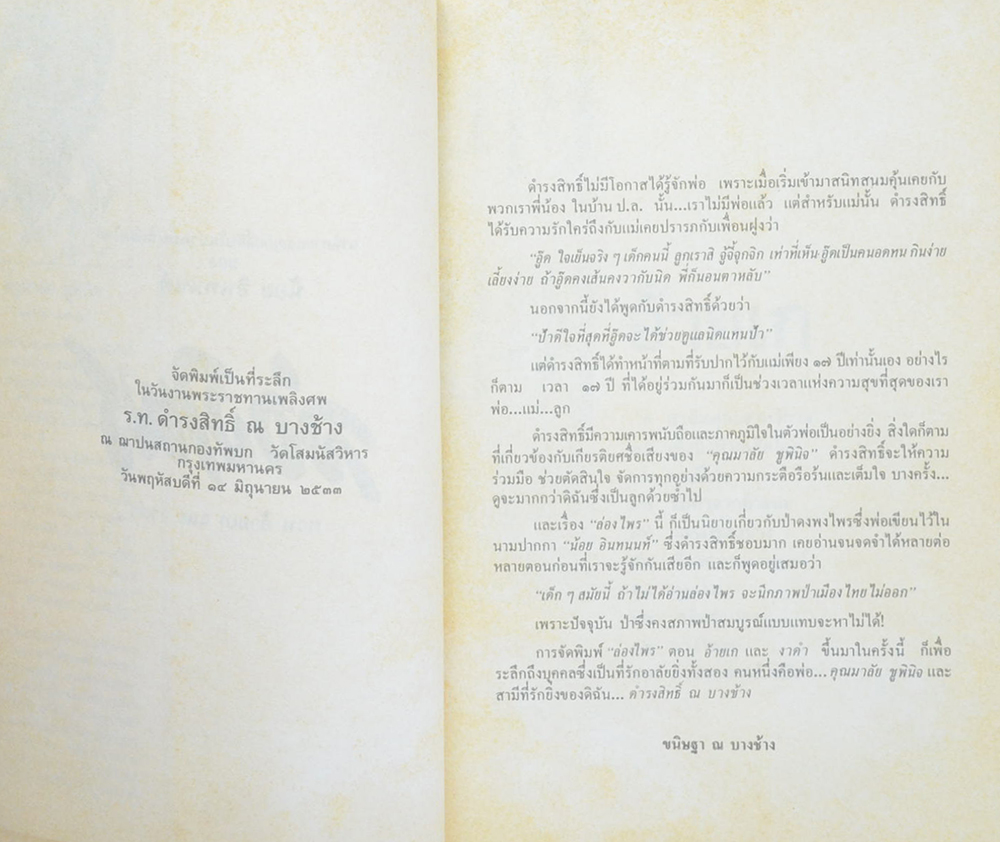 จัดพิมพ์เป็นที่ระลึก
ในวันงานพระราชทานเพลิงศพ
ร.ท. ดำรงสิทธิ์ ณ บางช้าง
ณ ฌาปนสถานกองทัพบก วัดโสมนัสวิหาร
กรุงเทพมหานคร
วันพฤหัสบดีที่ ๑๔ มิถุนายน ๒๕๓๓
ดำรงสิทธิ์ไม่มีโอกาสได้รู้จักพ่อ เพราะเมื่อเริ่มเข้ามาสนิทสนมคุ้นเคยกับ
พวกเราพี่น้อง ในบ้าน ป.ล. นั้น...เราไม่มีพ่อแล้ว แต่สำหรับแม่นั้น ดำรงสิทธิ์
ได้รับความรักใคร่ถึงกับแม่เคยปรารภกับเพื่อนฝูงว่า
“อู๊ด ใจเย็นจริง ๆ เด็กคนนี้ ลูกเราสิ จู้จี้จุกจิก เท่าที่เห็น อู๊ดเป็นคนอดทน กินง่าย
เลี้ยงง่าย ถ้าอู๊ดคงเส้นคงวากับนิด พี่ก็นอนตาหลับ”
นอกจากนี้ยังได้พูดกับดำรงสิทธิ์ด้วยว่า
“ป้าดีใจที่สุดที่อู๊ดจะได้ช่วยดูแลนิดแทนป้า”
แต่ดำรงสิทธิ์ได้ทำหน้าที่ตามที่รับปากไว้กับแม่เพียง ๑๗ ปีเท่านั้นเอง อย่างไร
ก็ตาม เวลา ๑๗ ปี ที่ได้อยู่ร่วมกันมาก็เป็นช่วงเวลาแห่งความสุขที่สุดของเรา
พ่อ...แม่...ลูก
ดำรงสิทธิ์มีความเคารพนับถือและภาคภูมิใจในตัวพ่อเป็นอย่างยิ่ง สิ่งใดก็ตาม
ที่เกี่ยวข้องกับเกียรติยศชื่อเสียงของ “คุณมาลัย ชูพินิจ” ดำรงสิทธิ์จะให้ความ
ร่วมมือ ช่วยตัดสินใจ จัดการทุกอย่างด้วยความกระตือรือร้นและเต็มใจ บางครั้ง...
ดูจะมากกว่าดิฉันซึ่งเป็นลูกด้วยซ้ำไป
และเรื่อง “ล่องไพร” นี้ ก็เป็นนิยายเกี่ยวกับป่าดงพงไพรซึ่งพ่อเขียนไว้ใน
นามปากกา “น้อย อินทนนท์” ซึ่งดำรงสิทธิ์ชอบมาก เคยอ่านจนจดจำได้หลายต่อ
หลายตอนก่อนที่เราจะรู้จักกันเสียอีก และก็พูดอยู่เสมอว่า
“เด็ก ๆ สมัยนี้ ถ้าไม่ได้อ่านล่องไพร จะนึกภาพป่าเมืองไทยไม่ออก”
เพราะปัจจุบัน ป่าซึ่งคงสภาพป่าสมบูรณ์แบบแทบจะหาไม่ได้!
การจัดพิมพ์ “ล่องไพร” ตอน อ้ายเก และ งาดำ ขึ้นมาในครั้งนี้ ก็เพื่อ
ระลึกถึงบุคคลซึ่งเป็นที่รักอาลัยยิ่งทั้งสอง คนหนึ่งคือพ่อ... คุณมาลัย ชูพินิจ และ
สามีที่รักยิ่งของดิฉัน... ดำรงสิทธิ์ ณ บางช้าง
ขนิษฐา ณ บางช้าง